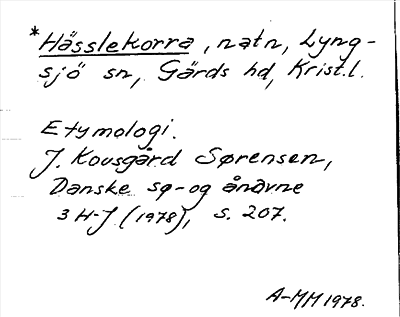 *Hässlekorra, natn, Lyng-
sjö sn, Gärds hd, Krist.l.
Etymologi.
J. Kousgård Sørensen,
Danske sø- og ånavne
3 H-J (1978), s. 207.
A-MM 1978.